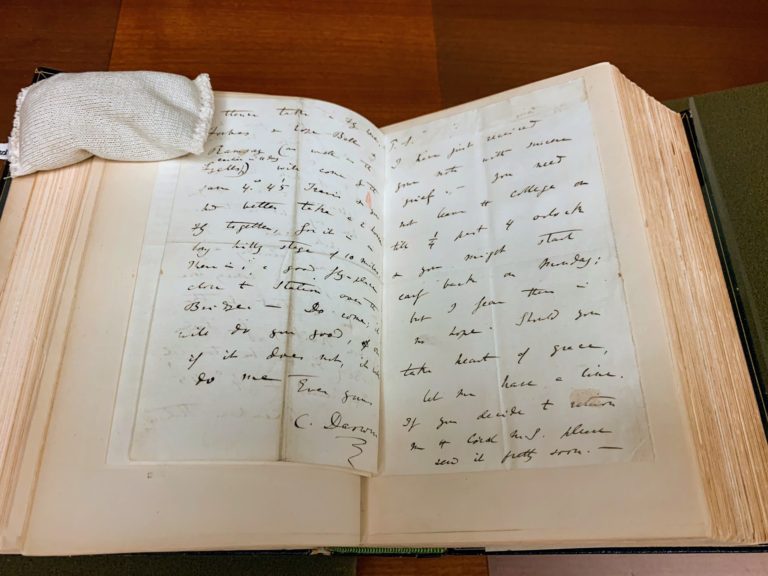 take a fly
Forbes I hope Bell &
Ramsay (as well as the
Lyells) will come by the
same 4. 45' Train & you
had better take a
fly together, for it is a
long hilly stage of 10 miles.
There is a good fly-place
close to Station over the
Bridge — Do come; it
will do you good, &
if it does not, it will
do me Ever yours
C. Darwin
P.S.
I have just received
your note with sincere
grief :— you need
not leave college on
till ¼ past 4 o'clock
& you might start
early back on Monday;
but I fear there is
no hope. Should you
take heart of grace,
let me have a line.
If you decide to return
me M.S. please
send it pretty soon. —